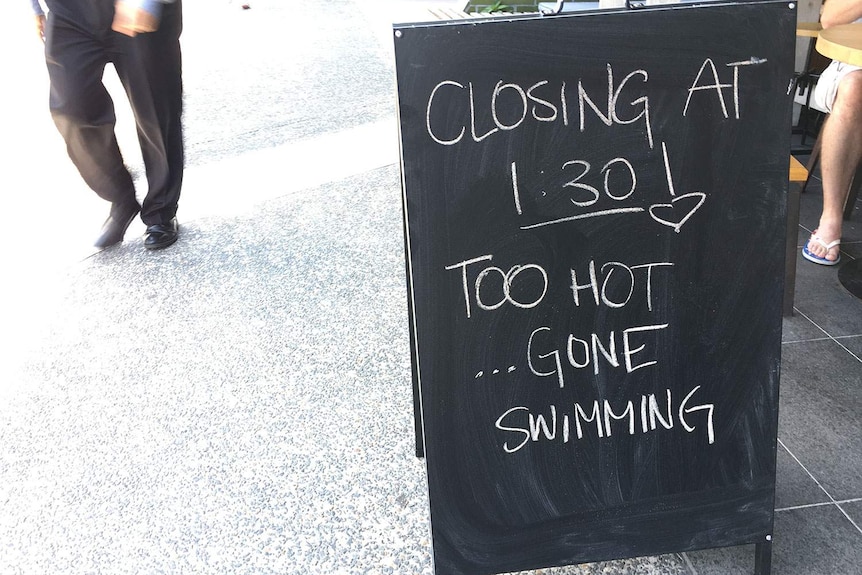 CLOSING AT
1:30!
TOO HOT
...GONE
SWIMMING